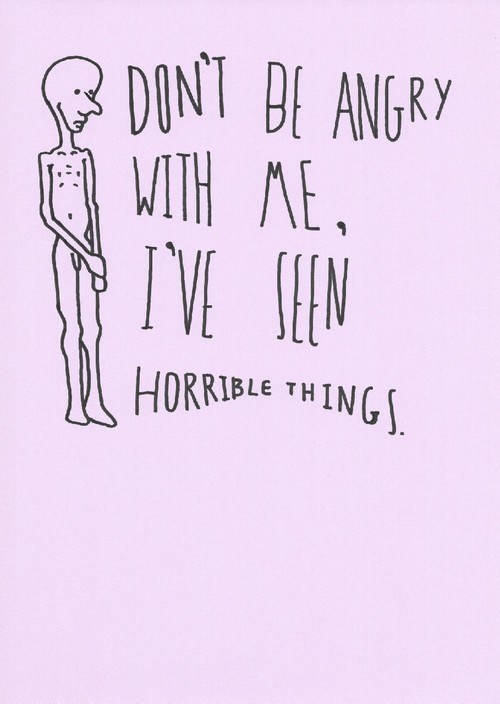 DON'T BE ANGRY
WITH ME,
I'VE SEEN
HORRIBLE THINGS.